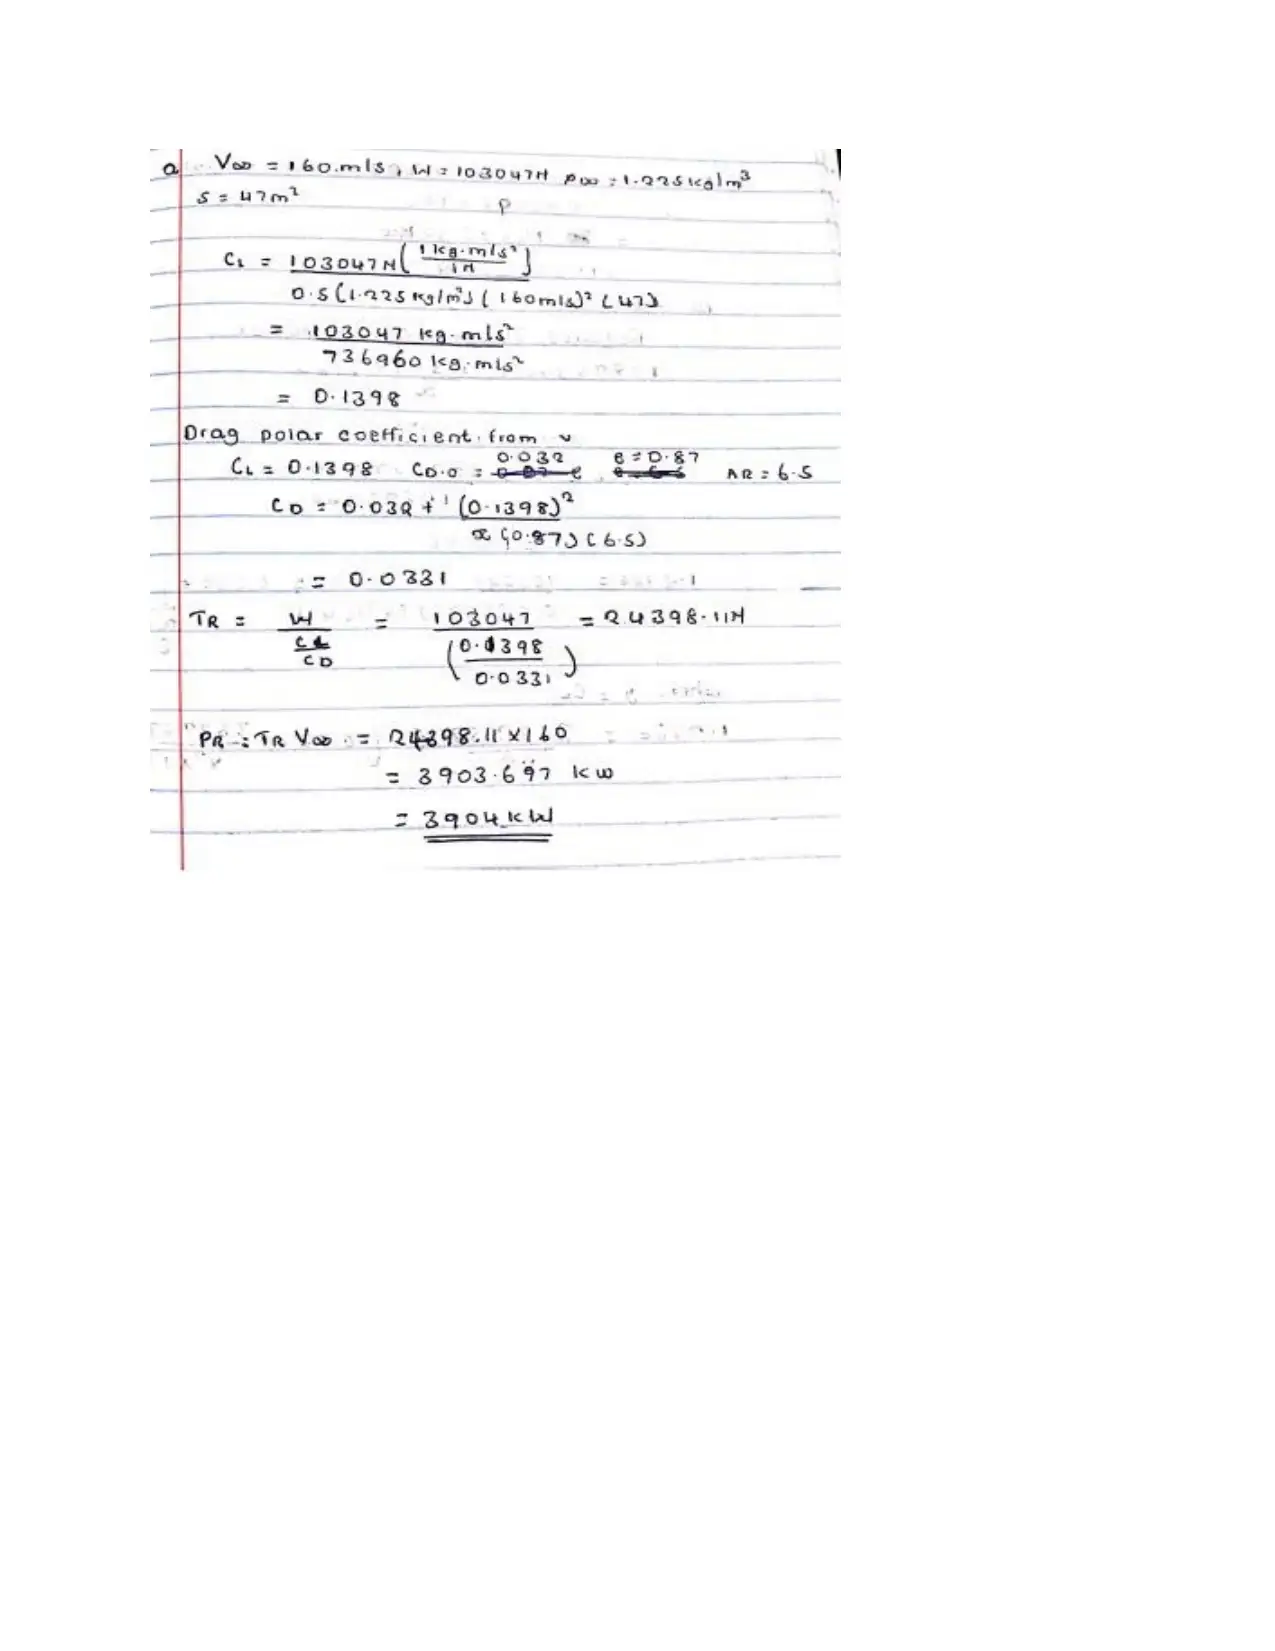 a V∞ = 160.m/s, W = 103047N ρ∞ = 1.225kg/m³
S = 47m²
P
CL = 103047N (1 kg.m/s² / 1N)
0.5(1.225 kg/m³) (160m/s)² (47)
= 103047 kg.m/s²
736960 kg.m/s²
= 0.1398
Drag polar coefficient from
0.032 e = 0.87
CL = 0.1398 CD.0 = AR = 6.5
CD = 0.032 + (0.1398)²
π (0.87) (6.5)
= 0.0331
TR = W / (CL / CD) = 103047 / (0.1398 / 0.0331) = 24398.11N
PR = TR V∞ = 24398.11 x 160
= 3903.697 kw
= 3904 kW